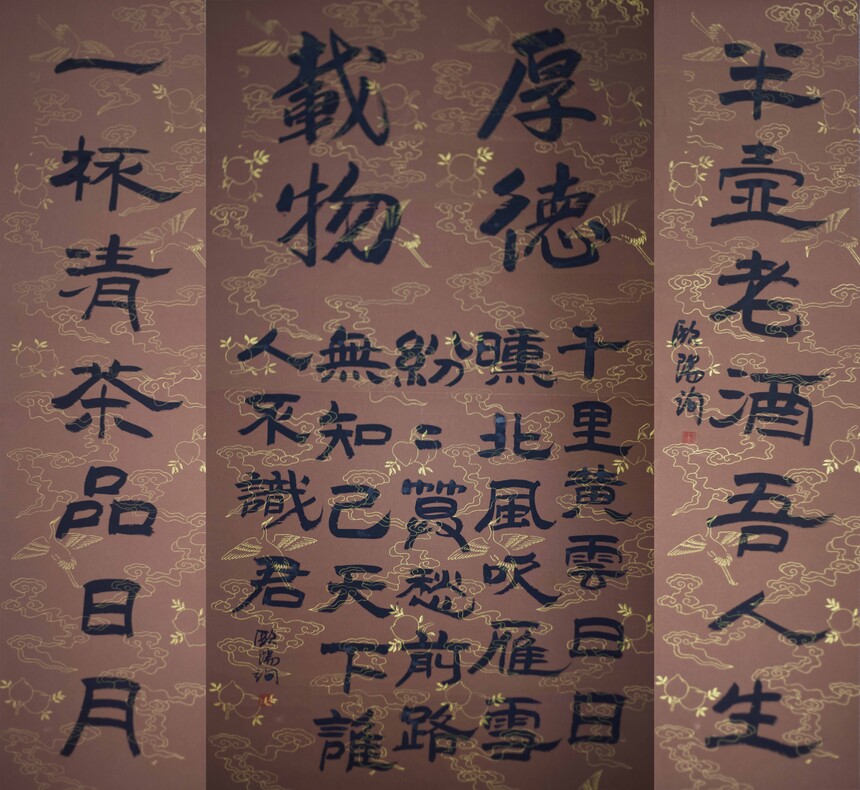 半壺老酒吾人生
歐陽詢
厚德
載物
千里黄雲白日
曛北風吹雁雪
紛〻莫愁前路
無知己天下誰
人不識君
歐陽詢
一杯清茶品日月